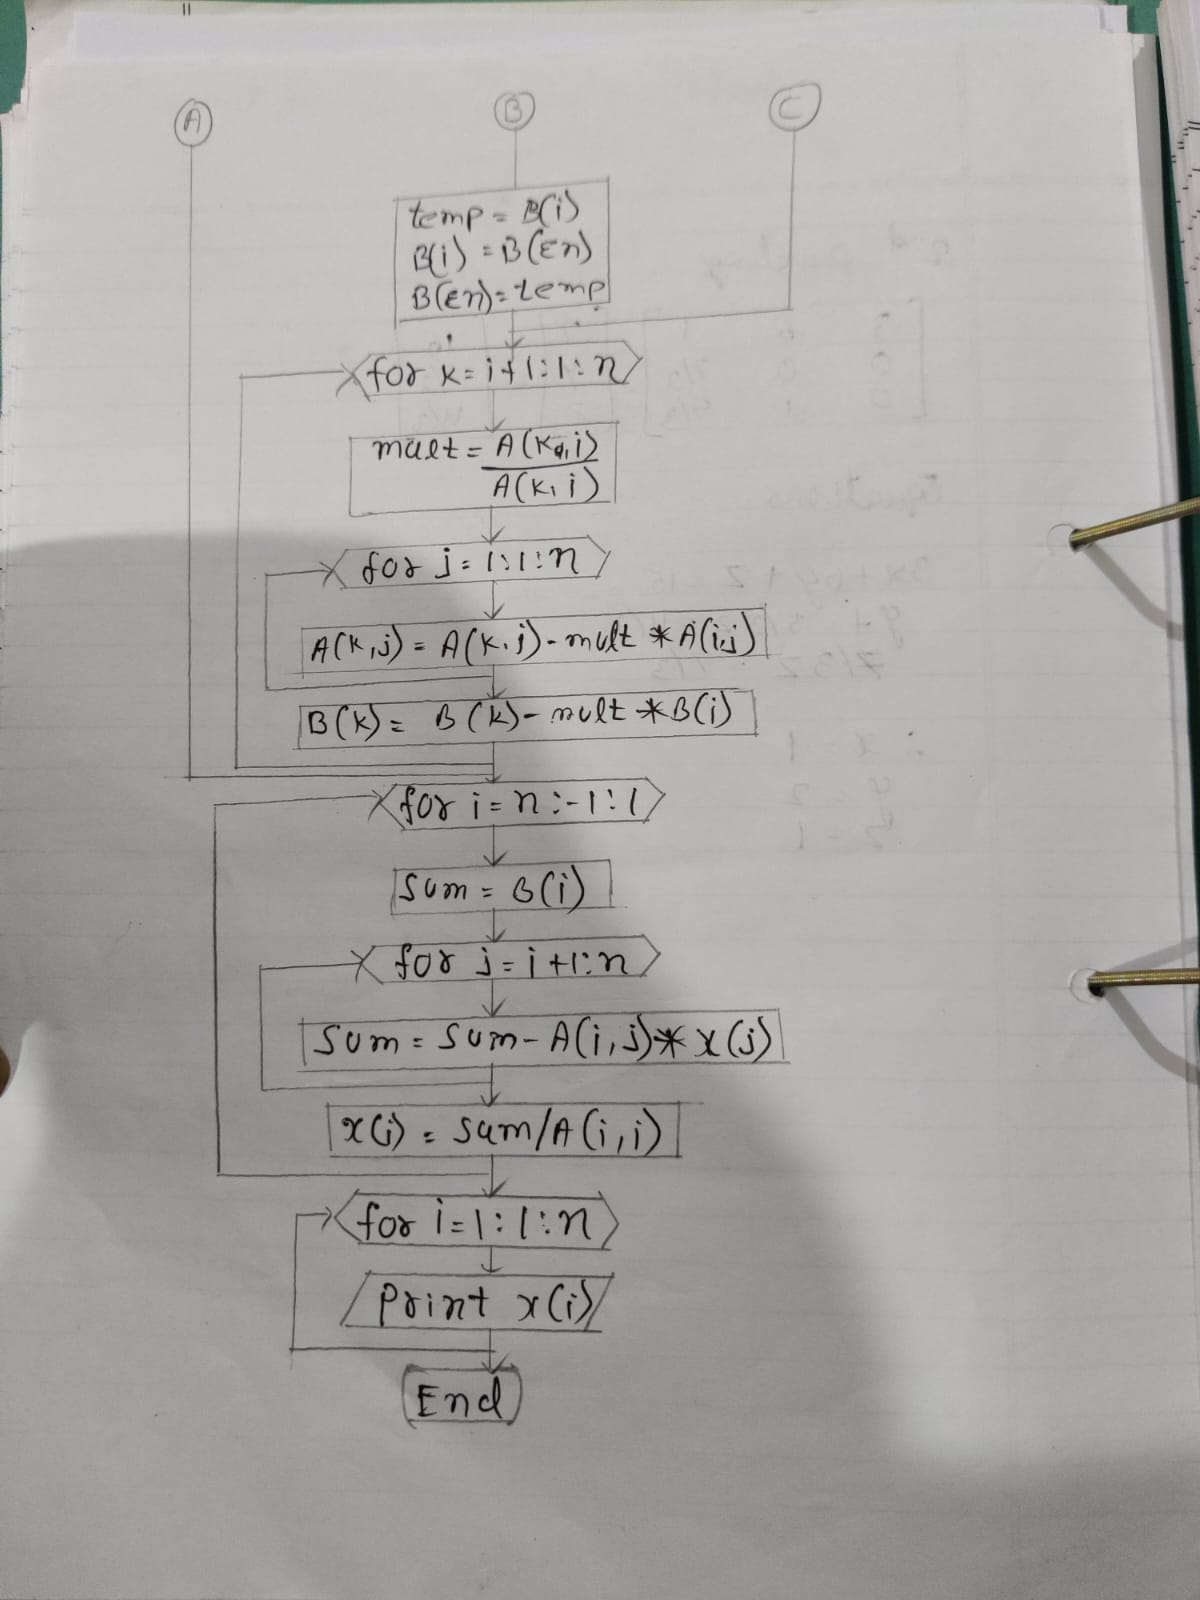 A B C
temp = B(i)
B(i) = B(En)
B(En) = temp
for k = i+1:1:n
mult = A(k,i)
A(k,i)
for j = 1:1:n
A(k,j) = A(k,j) - mult * A(i,j)
B(k) = B(k) - mult * B(i)
for i = n:-1:1
sum = B(i)
for j = i+1:n
sum = sum - A(i,j) * x(j)
x(i) = sum/A(i,i)
for i = 1:1:n
Print x(i)
End